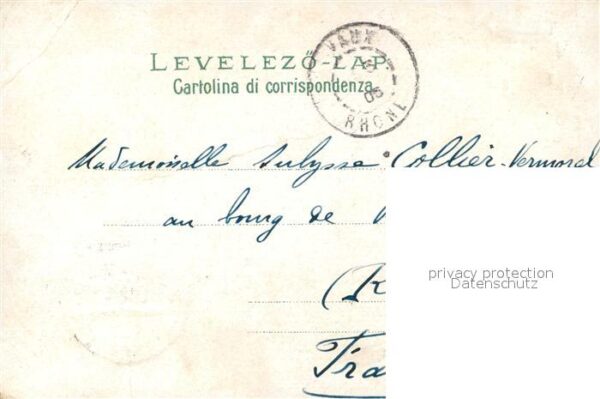 LEVELEZŐ-LAP.
Cartolina di corrispondenza.
VAUX
05
RHONE
Mademoiselle Collier-Vermorel
au bourg de V
(R
Fra
privacy protection
Datenschutz